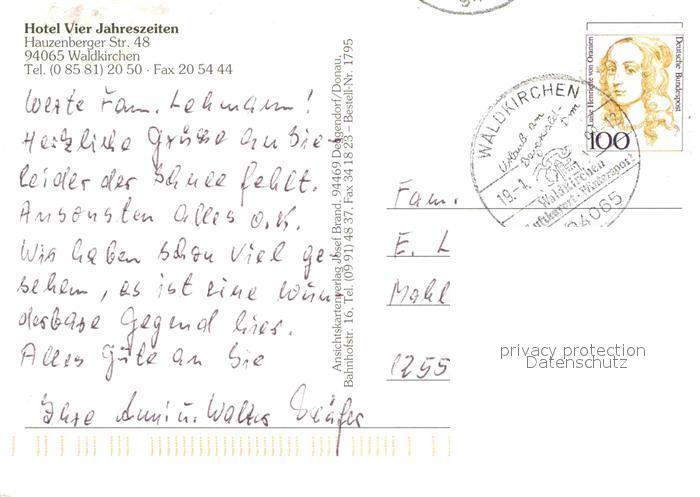 Hotel Vier Jahreszeiten
Hauzenberger Str. 48
94065 Waldkirchen
Tel. (0 85 81) 20 50 · Fax 20 54 44
Werte Fam. Lehmann!
Herzliche Grüße an Sie
leider der Schnee fehlt.
Ansonsten alles o.k.
Wir haben schon viel ge
sehen, es ist eine wun
derbare Gegend hier.
Alles Gute an Sie
Ihre Anni u. Walter
Ansichtskartenverlag Josef Brand, 94469 Deggendorf/Donau,
Bahnhofstr. 16, Tel. (09 91) 48 37, Fax 34 18 23 · Bestell-Nr. 1795
WALDKIRCHEN
Urlaub am
19.-1.
Waldkirchen
Luftkurort-Wintersport
94065
Luise Henriette von Oranien
Deutsche Bundespost
100
Fam.
E. L
Mahl
1255
privacy protection
Datenschutz